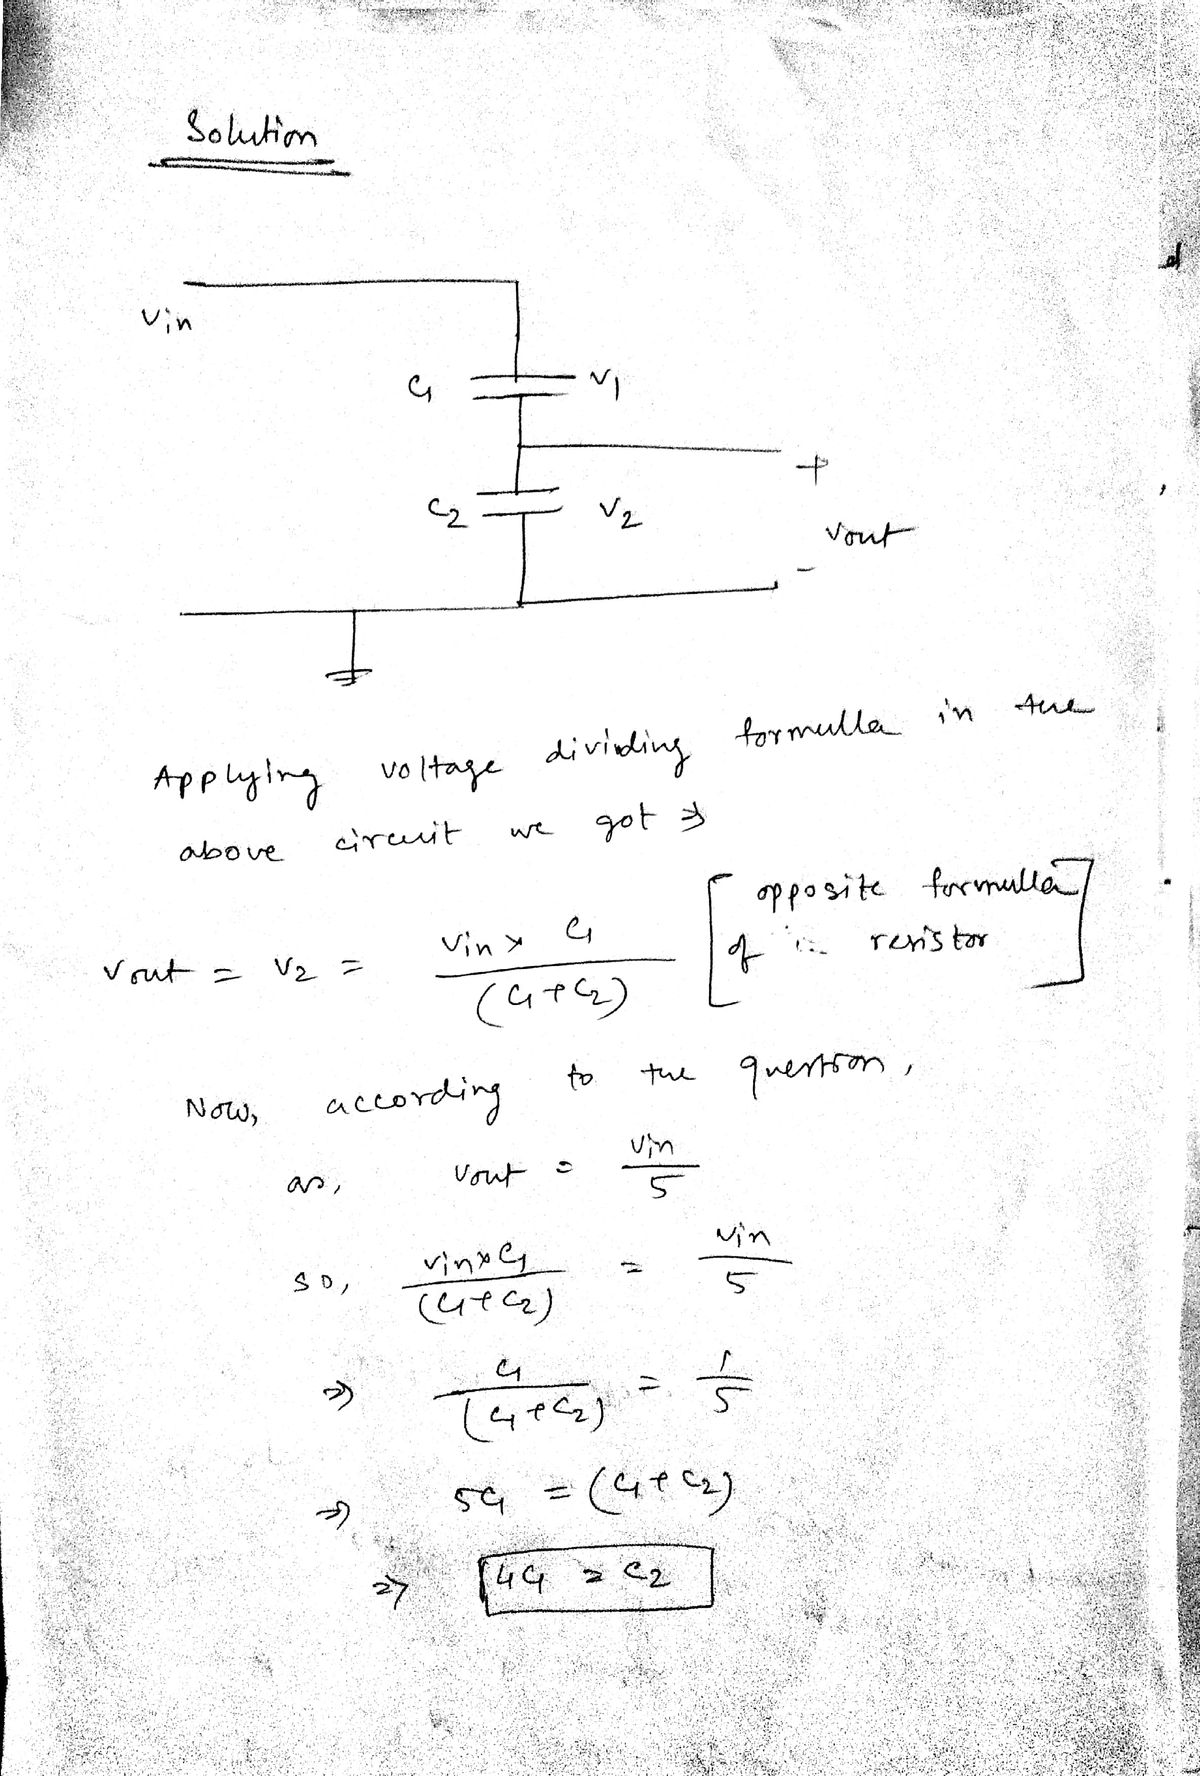 Solution
Vin
C1
V1
+
C2
V2
Vout
-
Applying voltage dividing formulla in the
above circuit we got ⇒
Vout = V2 = Vin × C1 / (C1+C2) [opposite formulla
of resistor]
Now, according to the question,
as, Vout = Vin / 5
so, Vin × C1 / (C1+C2) = Vin / 5
⇒ C1 / (C1+C2) = 1 / 5
⇒ 5C1 = (C1+C2)
⇒ 4C1 = C2